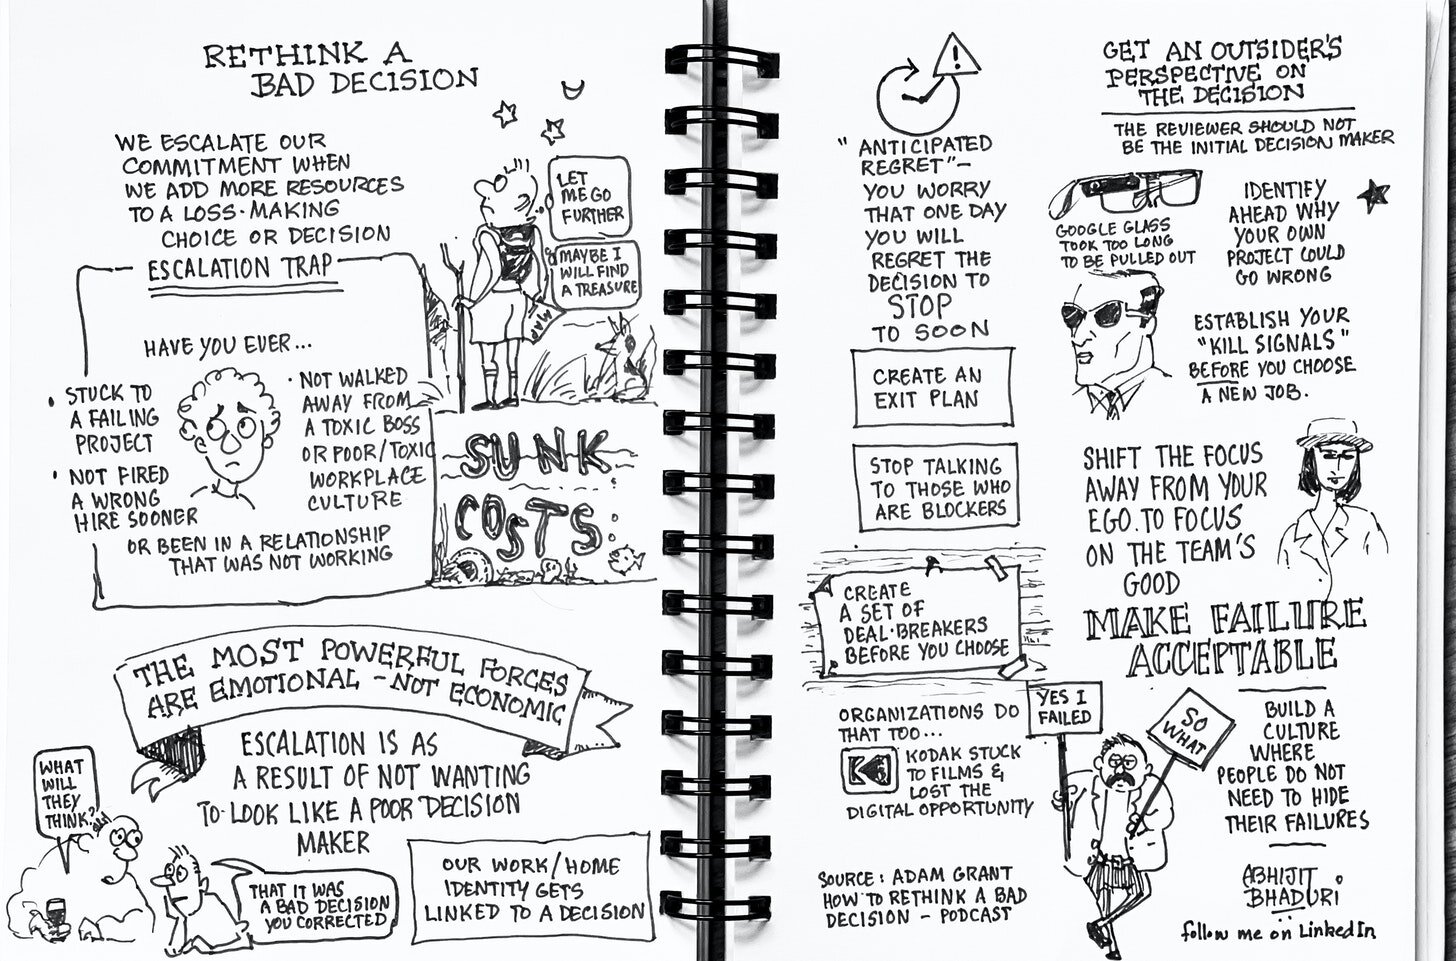 RETHINK A
BAD DECISION
WE ESCALATE OUR
COMMITMENT WHEN
WE ADD MORE RESOURCES
TO A LOSS-MAKING
CHOICE OR DECISION
LET
ME GO
FURTHER
MAYBE I
WILL FIND
A TREASURE
MAP
ESCALATION TRAP
HAVE YOU EVER...
• STUCK TO
A FAILING
PROJECT
• NOT FIRED
A WRONG
HIRE SOONER
• NOT WALKED
AWAY FROM
A TOXIC BOSS
OR POOR/TOXIC
WORKPLACE
CULTURE
OR BEEN IN A RELATIONSHIP
THAT WAS NOT WORKING
SUNK
COSTS
THE MOST POWERFUL FORCES
ARE EMOTIONAL - NOT ECONOMIC
ESCALATION IS AS
A RESULT OF NOT WANTING
TO LOOK LIKE A POOR DECISION
MAKER
WHAT
WILL
THEY
THINK?
THAT IT WAS
A BAD DECISION
YOU CORRECTED
OUR WORK/HOME
IDENTITY GETS
LINKED TO A DECISION
!
"ANTICIPATED
REGRET" -
YOU WORRY
THAT ONE DAY
YOU WILL
REGRET THE
DECISION TO
STOP
TO SOON
CREATE AN
EXIT PLAN
STOP TALKING
TO THOSE WHO
ARE BLOCKERS
CREATE
A SET OF
DEAL-BREAKERS
BEFORE YOU CHOOSE
ORGANIZATIONS DO
THAT TOO...
K
KODAK STUCK
TO FILMS &
LOST THE
DIGITAL OPPORTUNITY
SOURCE: ADAM GRANT
HOW TO RETHINK A BAD
DECISION - PODCAST
GET AN OUTSIDER'S
PERSPECTIVE ON
THE DECISION
THE REVIEWER SHOULD NOT
BE THE INITIAL DECISION MAKER
GOOGLE GLASS
TOOK TOO LONG
TO BE PULLED OUT
IDENTIFY
AHEAD WHY
YOUR OWN
PROJECT COULD
GO WRONG
ESTABLISH YOUR
"KILL SIGNALS"
BEFORE YOU CHOOSE
A NEW JOB.
SHIFT THE FOCUS
AWAY FROM YOUR
EGO. TO FOCUS
ON THE TEAM'S
GOOD
MAKE FAILURE
ACCEPTABLE
YES I
FAILED
SO
WHAT
BUILD A
CULTURE
WHERE
PEOPLE DO NOT
NEED TO HIDE
THEIR FAILURES
ABHIJIT
BHADURI
follow me on LinkedIn